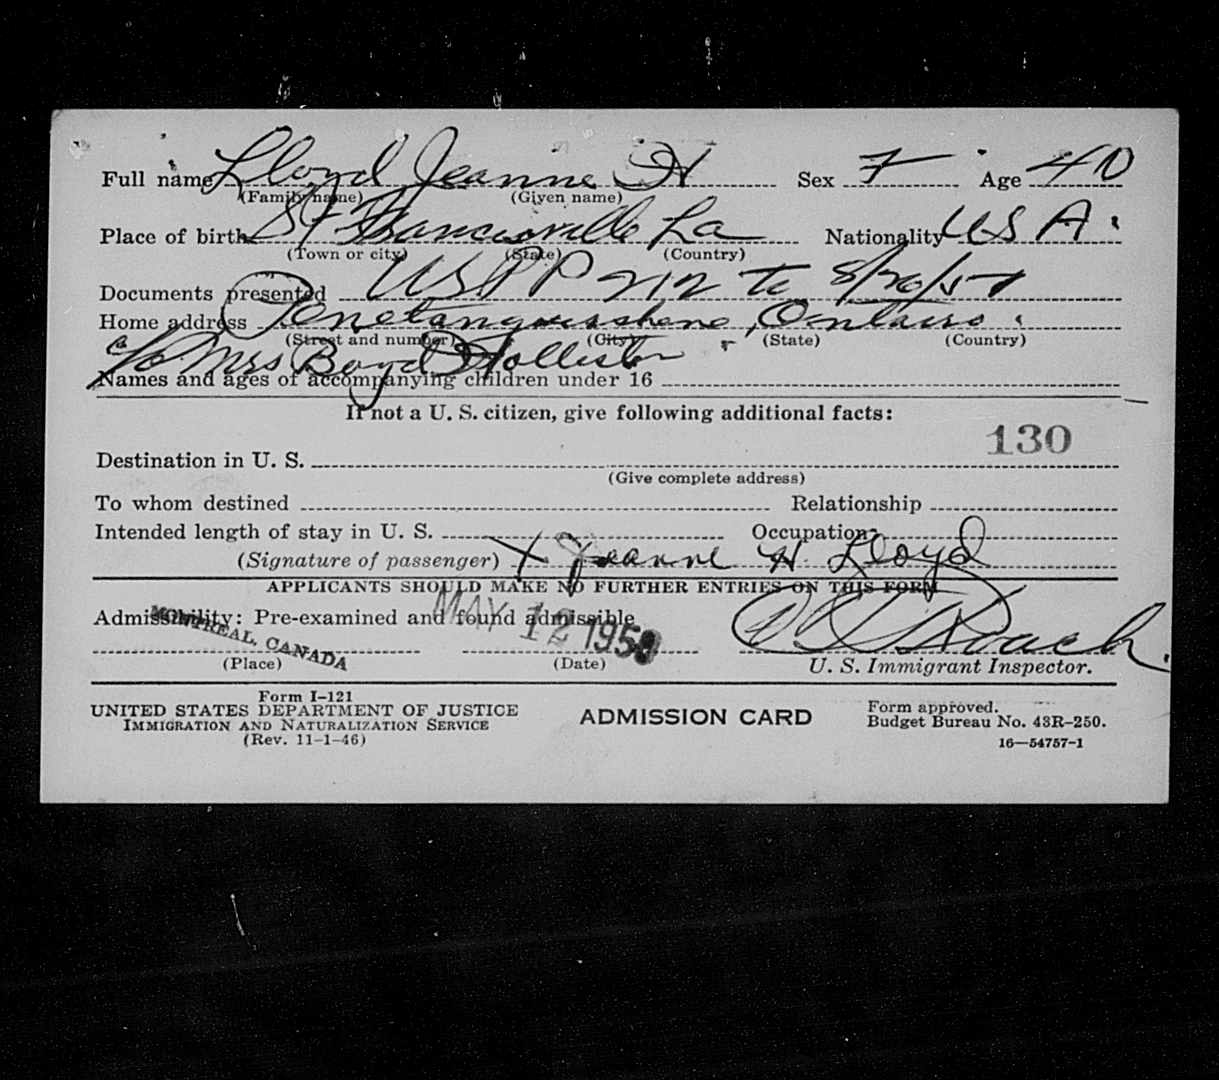 Full name Lloyd Jeanne H Sex F Age 40
(Family name) (Given name)
Place of birth St Francisville La Nationality USA.
(Town or city) (State) (Country)
Documents presented USPP 212 to 8/20/51
Home address Penetanguishene, Ontario.
(Street and number) (City) (State) (Country)
c/o Mrs Boyd Hollister
Names and ages of accompanying children under 16
If not a U. S. citizen, give following additional facts:
130
Destination in U. S.
(Give complete address)
To whom destined Relationship
Intended length of stay in U. S. Occupation
(Signature of passenger) X Jeanne H. Lloyd
APPLICANTS SHOULD MAKE NO FURTHER ENTRIES ON THIS FORM
Admissibility: Pre-examined and found admissible
MONTREAL, CANADA MAY 12 1950 Roach
(Place) (Date) U. S. Immigrant Inspector.
Form I-121
UNITED STATES DEPARTMENT OF JUSTICE
IMMIGRATION AND NATURALIZATION SERVICE
(Rev. 11-1-46)
ADMISSION CARD
Form approved.
Budget Bureau No. 43R-250.
16—54757-1